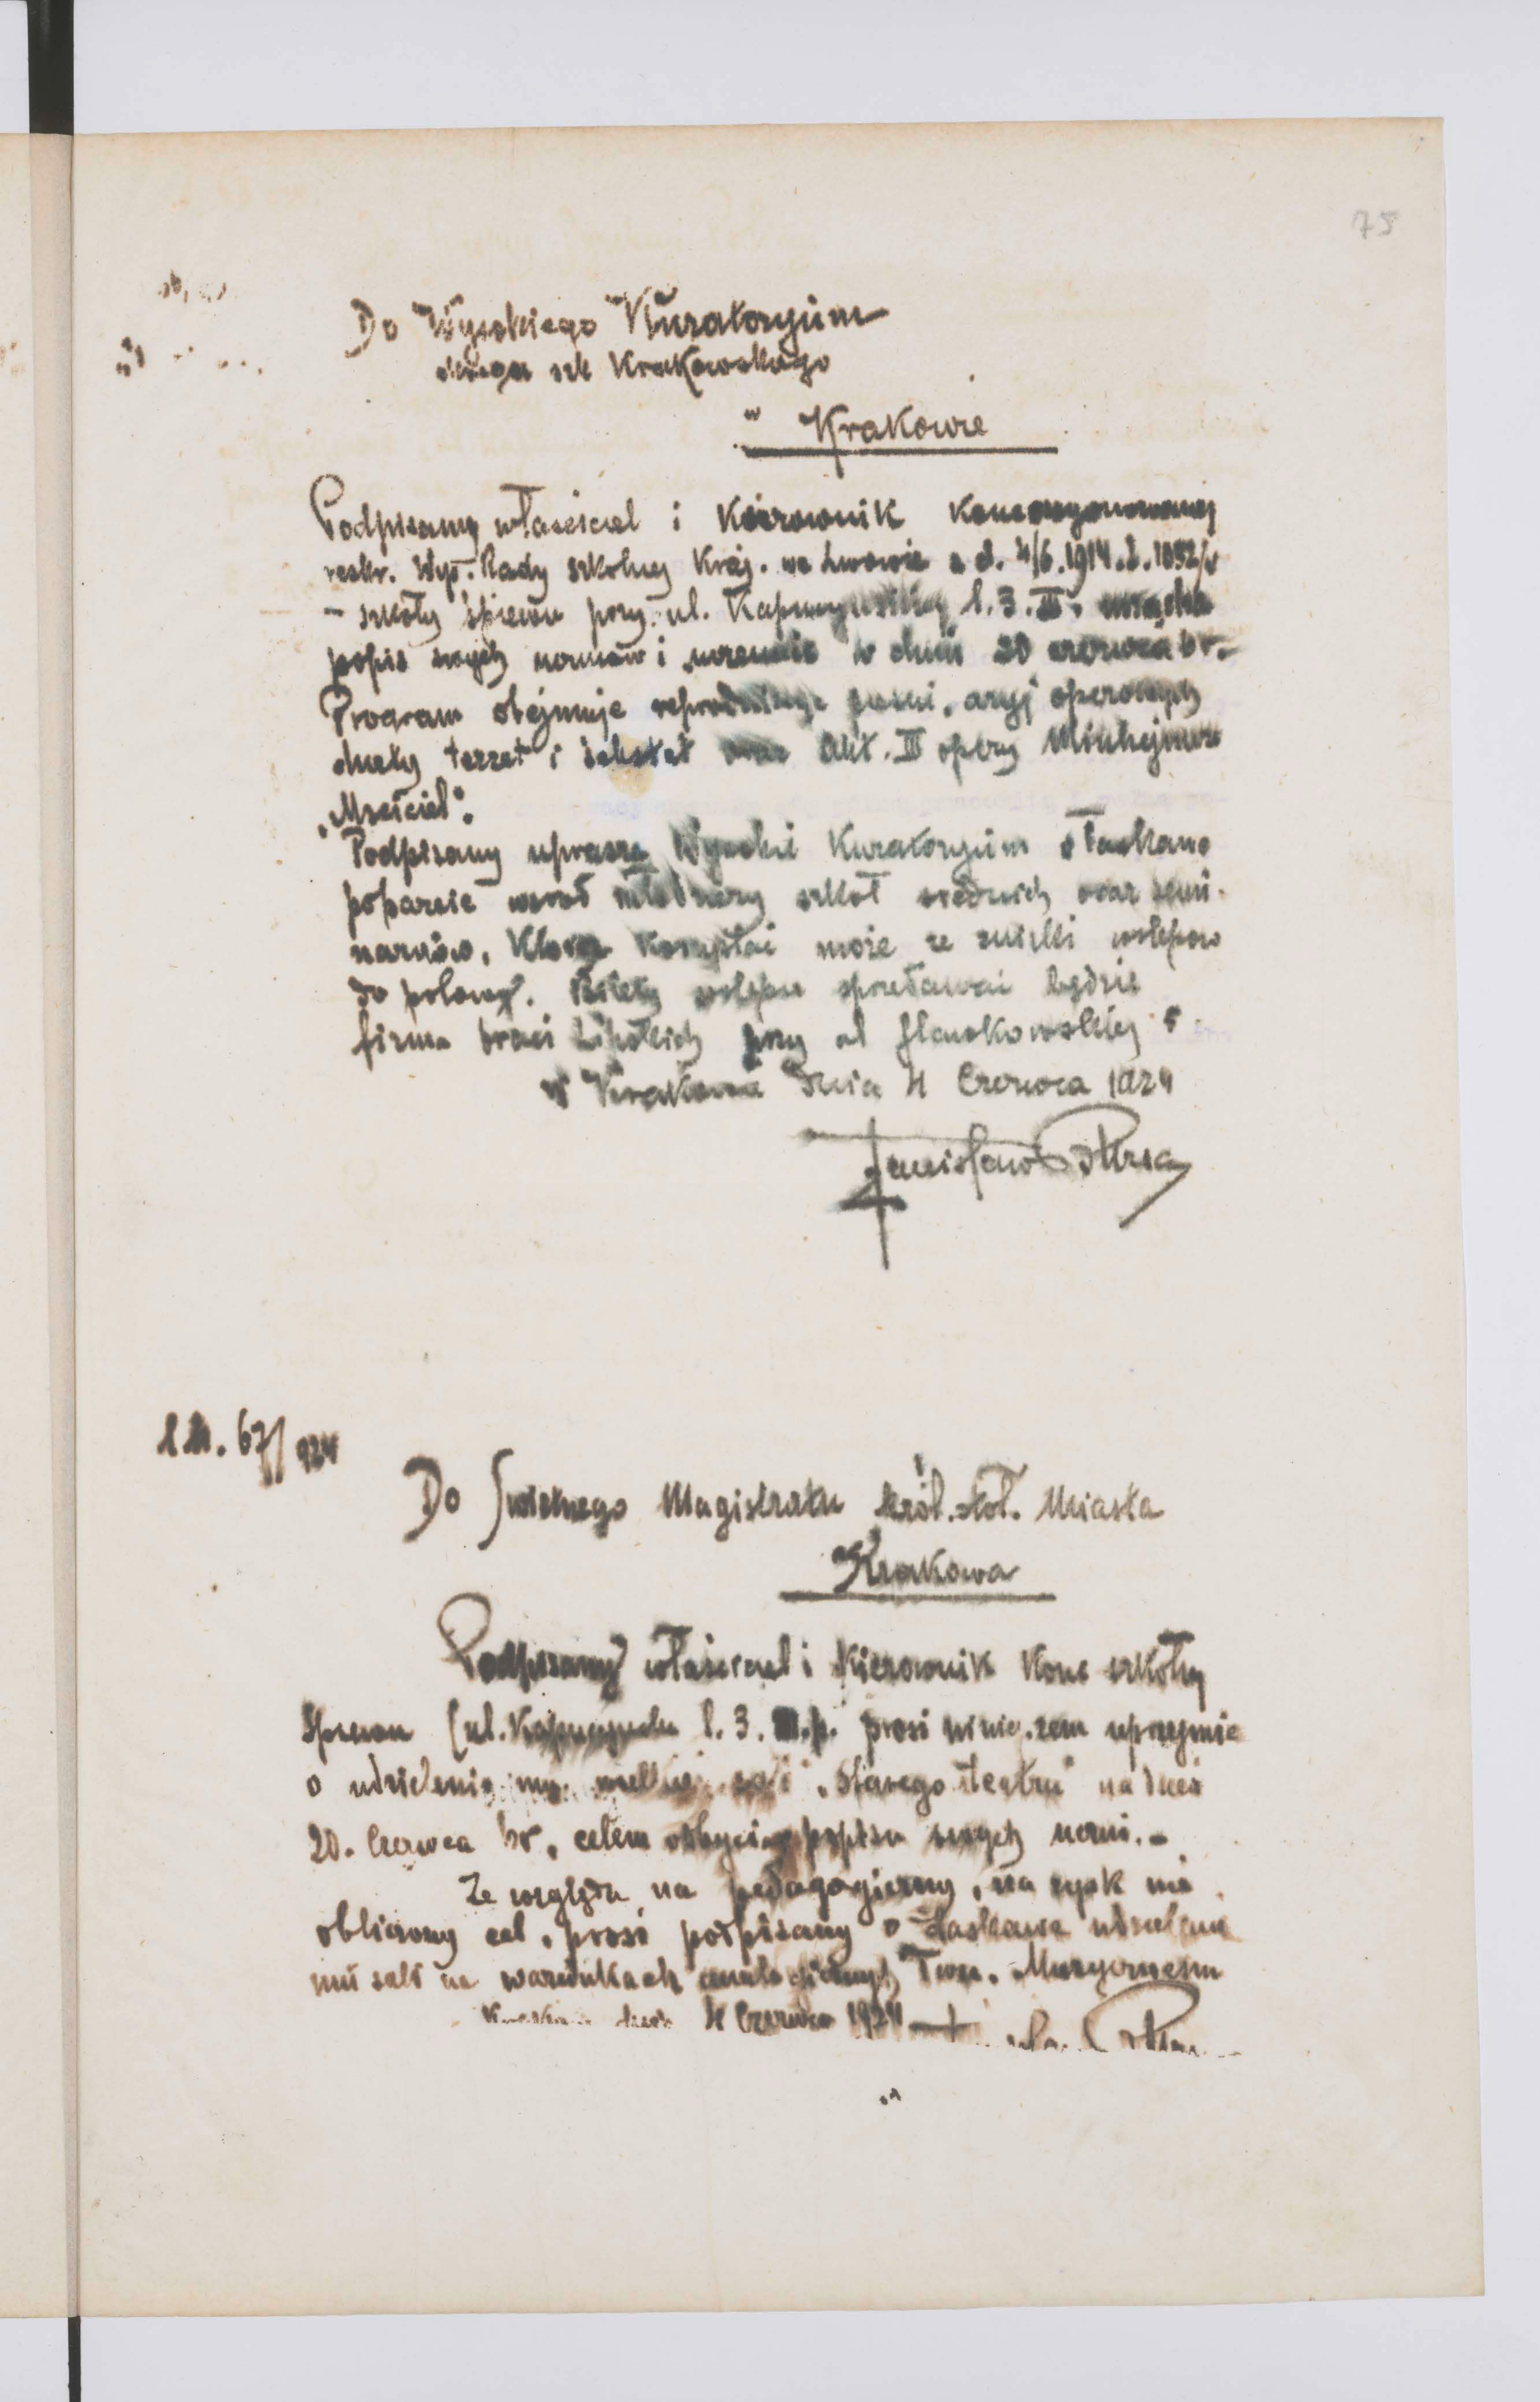 75
Do Wysokiego Kuratoryum
okręgu szk Krakowskiego
w Krakowie
Podpisany właściciel i Kierownik Koncesyonowanej
reskr. Wys. Rady szkolnej Kraj. we Lwowie z d. 4/6.1914.L.1032/V
– szkoły śpiewu przy. ul. Kapucyńskiej l.3.III. urządza
popis swych uczniów i uczennic w dniu 20 czerwca br.–
Program obejmuje reprodukcye pieśni, aryj operowych
duety terzet i sekstet oraz Akt. III opery Münhejmera
„Mściciel".
Podpisany uprasza Wysokie Kuratoryum o łaskawe
poparcie wśród młodzieży szkół średnich oraz semi-
naryów, Która Korzystać może ze zniżki wstępów
do połowy. Bilety wstępu sprzedawać będzie
firma braci Lipskich przy ul Sławkowskiej
W Krakowie dnia 4 Czerwca 1924
Stanisław Bursa
LM. 67/924
Do Świetnego Magistratu król. stoł. Miasta
Krakowa
Podpisany właściciel i Kierownik Konc szkoły
Śpiewu (ul. Kapucyńska l. 3. III.p. prosi uprzejmie
o udzielenie mu wielkiej sali „Starego teatru" na dzień
20. Czerwca br, celem odbycia popisu swych uczni.–
Ze względu na pedagogiczny, na zysk nie
obliczony cel, prosi podpisany o łaskawe udzielenie
mu sali na warunkach analogicznych Tow. Muzycznemu
Kraków dnia 4 Czerwca 1924